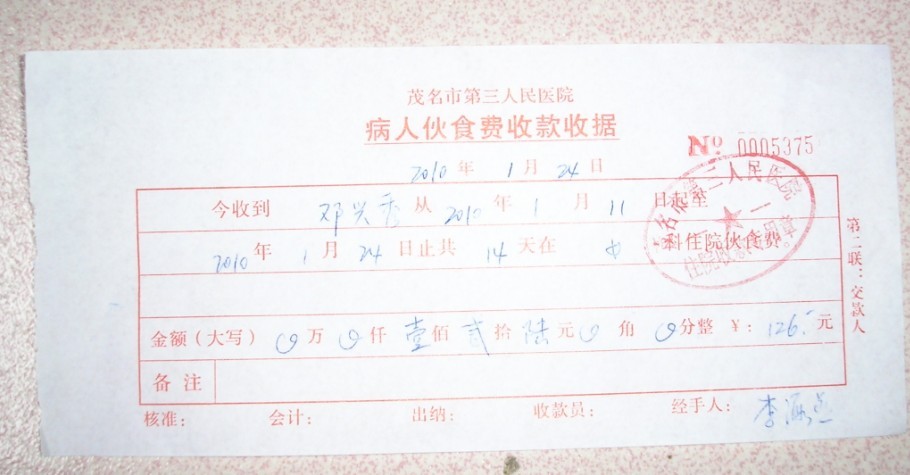 茂名市第三人民医院
病人伙食费收款收据
№ 0005375
2010年1月24日
今收到 邓兴秀 从 2010 年 1 月 11 日起至
2010 年 1 月 24 日止共 14 天在 中 科住院伙食费
金额(大写) 0 万 0 仟 壹 佰 贰 拾 陆 元 0 角 0 分整 ¥: 126.- 元
备注
核准: 会计: 出纳: 收款员: 经手人: 李
第二联:交款人
茂名市第三人民医院